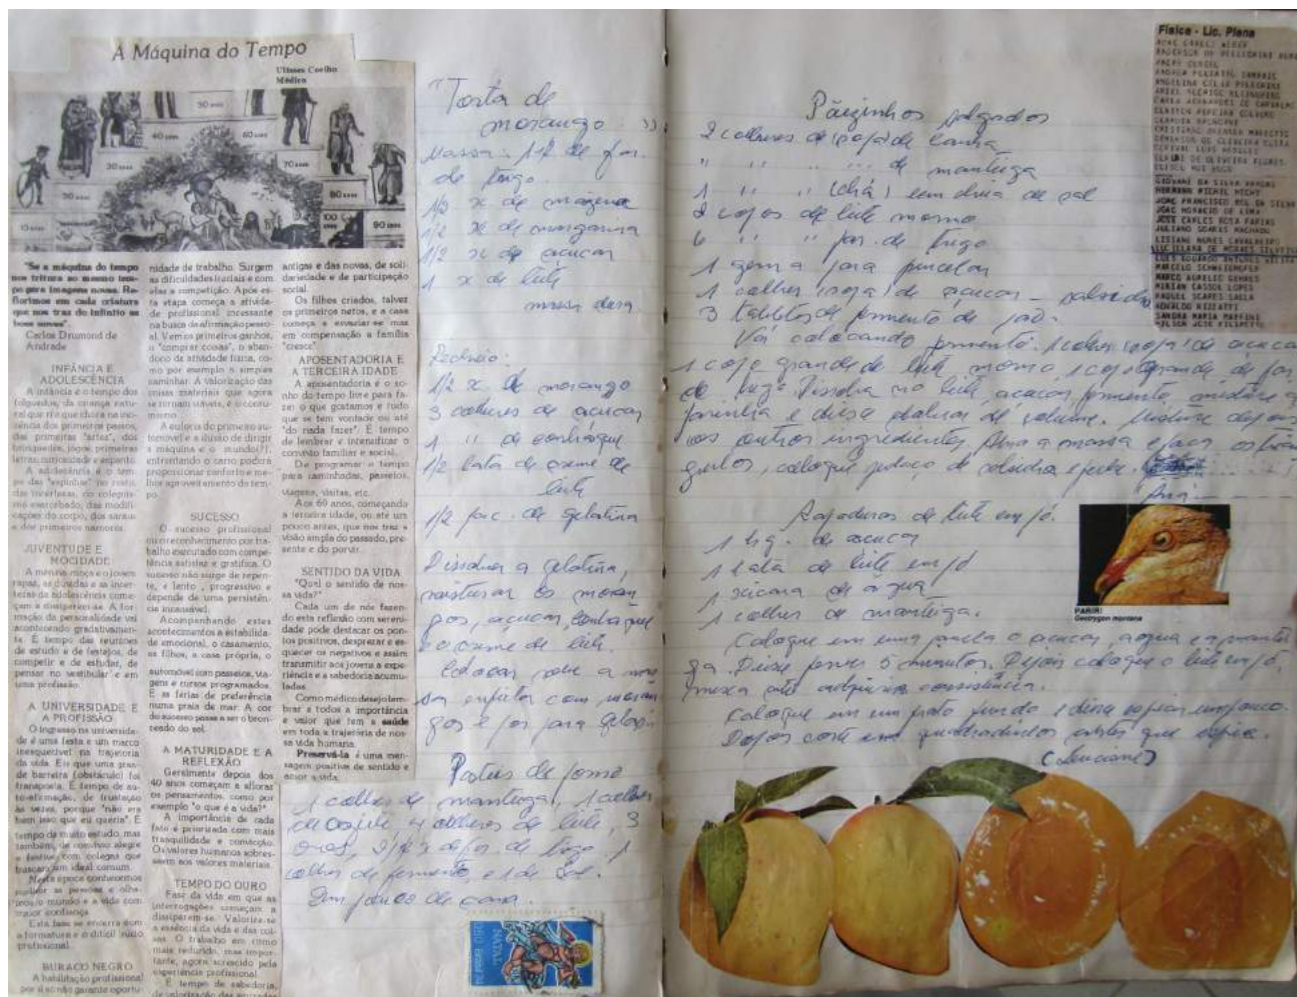 A Máquina do Tempo
Ulisses Coelho
Médico
50 anos
40 anos
60 anos
30 anos
70 anos
20 anos
80 anos
10 anos
100
90 anos
"Se a máquina do tempo
nos tritura ao mesmo tem-
po gera imagens novas. Re-
florimos em cada criatura
que nos traz do infinito as
boas novas".
Carlos Drumond de
Andrade
INFÂNCIA E
ADOLESCÊNCIA
A infância é o tempo dos
folguedos, da criança natu-
ral que ri e que chora na ino-
cência dos primeiros passos,
das primeiras "artes", dos
brinquedos, jogos, primeiras
letras, curiosidade e espanto.
A adolescência é o tem-
po das "espinhas" no rosto,
das incertezas, do
exacerbado, das modifi-
cações do corpo, dos
e dos primeiros namoros.
JUVENTUDE E
MOCIDADE
A menina moça e o jovem
rapaz, as dúvidas e as incer-
tezas da adolescência come-
çam a dissipar-se. A for-
mação da personalidade vai
acontecendo gradativamen-
te. É tempo das reuniões
de estudo e de festejos, de
competir e de estudar, de
pensar no vestibular e em
uma profissão.
A UNIVERSIDADE E
A PROFISSÃO
O ingresso na universida-
de é uma festa e um marco
inesquecível na trajetória
da vida. Eis que uma gran-
de barreira (obstáculo) foi
transposta. É tempo de au-
to-afirmação, de frustação
às vezes, porque "não era
bem isso que eu queria". É
tempo de muito estudo, mas
também, de convívio alegre
e festivo com colegas que
buscam um ideal comum.
Nesta época conhecemos
melhor as pessoas e olha-
mos o mundo e a vida com
maior confiança.
Esta fase se encerra com
a formatura e o difícil início
profissional.
BURACO NEGRO
A habilitação profissional
por si só não garante oportu-
nidade de trabalho. Surgem
as dificuldades iniciais e com
elas a competição. Após es-
ta etapa começa a ativida-
de profissional incessante
na busca da afirmação pesso-
al. Vem os primeiros ganhos,
o "comprar coisas", o aban-
dono da atividade física, co-
mo por exemplo o simples
caminhar. A valorização das
coisas materiais que agora
se tornam viáveis, é o consu-
mismo.
A euforia do primeiro au-
tomóvel e a ilusão de dirigir
a máquina e o mundo(?),
entretanto o carro poderá
proporcionar conforto e me-
lhor aproveitamento do tem-
po.
SUCESSO
O sucesso profissional
ou o reconhecimento por tra-
balho executado com compe-
tência satisfaz e gratifica. O
sucesso não surge de repen-
te, é lento, progressivo e
depende de uma persistên-
cia incansável.
Acompanhando estes
acontecimentos a estabilida-
de emocional, o casamento,
os filhos, a casa própria, o
automóvel com passeios, via-
gens e cursos programados.
E as férias de preferência
numa praia de mar. A cor
do sucesso passa a ser o bron-
zeado do sol.
A MATURIDADE E A
REFLEXÃO
Geralmente depois dos
40 anos começam a aflorar
os pensamentos, como por
exemplo "o que é a vida?"
A importância de cada
fato é priorizada com mais
tranquilidade e convicção.
Os valores humanos sobres-
saem aos valores materiais.
TEMPO DO OURO
Fase da vida em que as
interrogações começam a
dissiparem-se. Valoriza-se
a essência da vida e das coi-
sas. O trabalho em ritmo
mais reduzido, mas impor-
tante, agora acrescido pela
experiência profissional.
É tempo de sabedoria,
de valorização das amizades
antigas e das novas, de soli-
dariedade e de participação
social.
Os filhos criados, talvez
os primeiros netos, e a casa
começa a esvaziar-se mas
em compensação a família
"cresce".
APOSENTADORIA E
A TERCEIRA IDADE
A aposentadoria é o so-
nho do tempo livre para fa-
zer o que gostamos e tudo
que se tem vontade ou até
"do nada fazer". É tempo
de lembrar e intensificar o
convívio familiar e social.
De programar o tempo
para caminhadas, passeios,
viagens, visitas, etc.
Aos 60 anos, começando
a terceira idade, ou até um
pouco antes, que nos traz a
visão ampla do passado, pre-
sente e do porvir.
SENTIDO DA VIDA
"Qual o sentido de nos-
sa vida?"
Cada um de nós fazen-
do esta reflexão com sereni-
dade pode destacar os pon-
tos positivos, desprezar e es-
quecer os negativos e assim
transmitir aos jovens a expe-
riência e a sabedoria acumu-
ladas.
Como médico desejo lem-
brar a todos a importância
e valor que tem a saúde
em toda a trajetória de nos-
sa vida humana.
Preservá-la é uma men-
sagem positiva de sentido e
amor a vida.
"Torta de
morango"
Massa: 1 1/2 de far.
de trigo
1/2 x de maizena
1/2 x de margarina
1/2 x de açucar
1 x de leite
massa dura
Recheio:
1/2 x de morango
3 colheres de açucar
1 " de conhaque
1/2 lata de creme de
leite
1/2 pac. de gelatina
Dissolver a gelatina,
misturar os moran
gos, açucar, conhaque
e o creme de leite.
Colocar sobre a mas
sa enfeitar com moran
gos e por para gelar.
Pasteis de forno
1 colher de mantega, 1 colher
de azeite, 4 colheres de leite, 3
ovos, 2 1/2 x de far de trigo, 1
colher de fermento, e 1 de sal.
Um pouco de cana.
NATAL
BRASIL
Pãezinhos salgados
2 colheres de (sopa) de banha
" " " " de manteiga
1 " " (chá) bem cheia de sal
2 copos de leite morno
6 " " far. de trigo
1 gema para pincelar
1 colher (sopa) de açucar - salsicha
3 tabletes de fermento de pão.
Vá colocando fermento. 1 colher (sopa) de açucar
1 copo grande de leite morno, 1 copo grande de far.
de trigo. Dissolva no leite, açucar, fermento, misture a
farinha e deixa dobrar de volume. Misture depois
os outros ingredientes. Abra a massa e faça os triân
gulos, coloque pedaço de salsicha e
Rapaduras de leite em pó.
1 kg. de açucar
1 lata de leite em pó
1 xicara de água
1 colher de manteiga.
Coloque em uma panela o açucar, a agua e a mantei
ga. Deixe ferver 5 minutos. Depois coloque o leite em pó,
mexa até adquirir consistência.
Coloque em um prato fundo e deixe esfriar um pouco.
Depois corte em quadradinhos antes que esfrie.
(Luciane)
PARIRI
Geotrygon montana
Física - Lic. Plena
GIOVANI DA SILVA VARGAS
HERMANN MICHEL MICHE
JOAO FRANCISCO ROL DA SILVA
JOAO HORACIO DE LIMA
JOSE CARLOS ROSA FARIAS
JULIANO SOARES MACHADO
LISIANE NUNES CAVALHEIRO
MARCELO SCHNEIDER
MIRIAN CASSOL LOPES
RAQUEL SOARES SAELA
RONALDO RIZZATTI
SANDRA MARIA MAFFINI
VILSON JOSE FILIPETTO